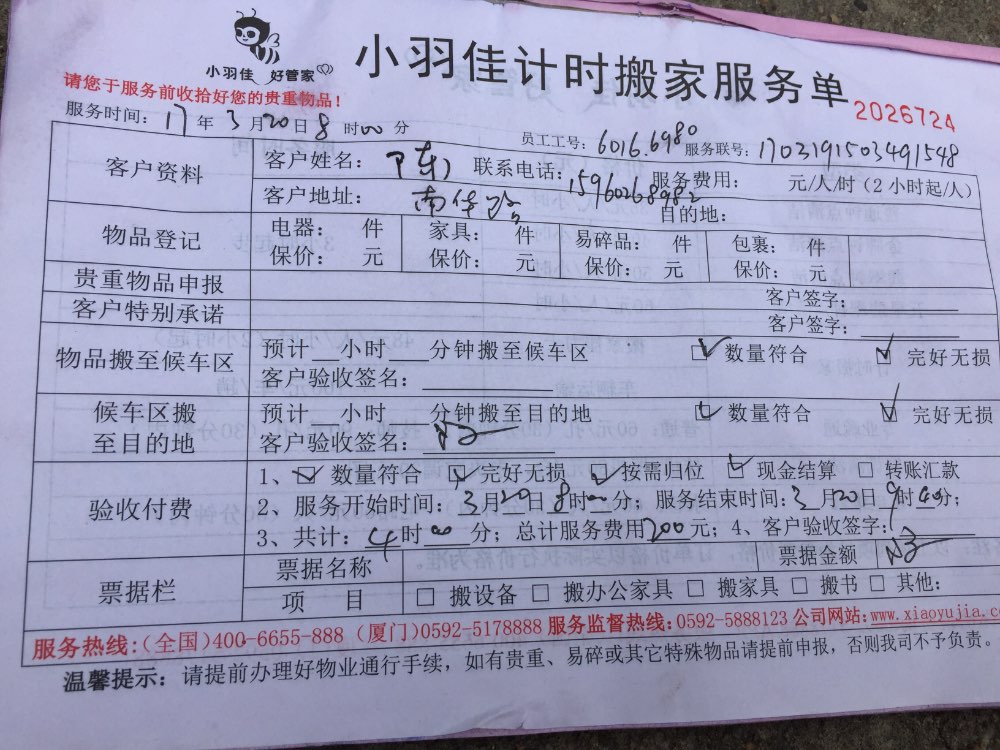 小羽佳 好管家
小羽佳计时搬家服务单
2026724
请您于服务前收拾好您的贵重物品！
服务时间：17年3月20日8时00分
员工工号：6016.6980 服务联号：1703191503491548
客户资料
客户姓名：陈 联系电话：15960268982 服务费用： 元/人/时（2小时起/人）
客户地址：南华路 目的地：
物品登记
电器： 件 家具： 件 易碎品： 件 包裹： 件
保价： 元 保价： 元 保价： 元 保价： 元
贵重物品申报 客户签字：
客户特别承诺 客户签字：
物品搬至候车区
预计 小时 分钟搬至候车区 数量符合 完好无损
客户验收签名：
候车区搬
至目的地
预计 小时 分钟搬至目的地 数量符合 完好无损
客户验收签名：
验收付费
1、数量符合 完好无损 按需归位 现金结算 转账汇款
2、服务开始时间：3月20日8时00分；服务结束时间：3月20日9时40分；
3、共计：4时00分；总计服务费用200元；4、客户验收签字：
票据栏
票据名称 票据金额
项 目 搬设备 搬办公家具 搬家具 搬书 其他：
服务热线：（全国）400-6655-888（厦门）0592-5178888 服务监督热线：0592-5888123 公司网站：www.xiaoyujia.com
温馨提示：请提前办理好物业通行手续，如有贵重、易碎或其它特殊物品请提前申报，否则我司不予负责。